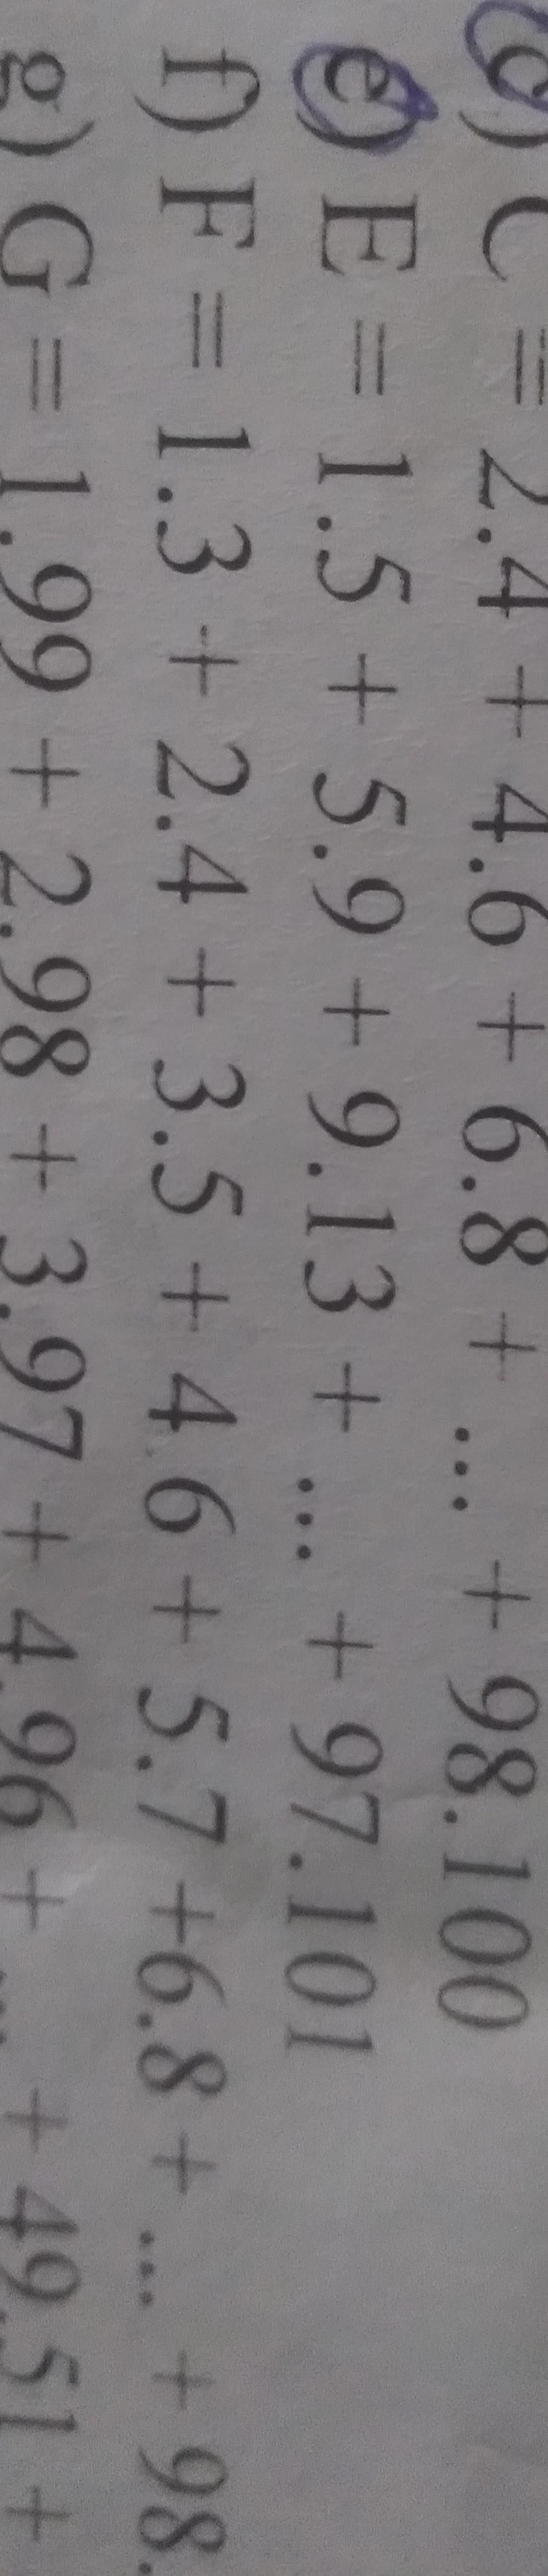 c) C = 2.4 + 4.6 + 6.8 + ... + 98.100
e) E = 1.5 + 5.9 + 9.13 + ... + 97.101
f) F = 1.3 + 2.4 + 3.5 + 4.6 + 5.7 +6.8 + ... + 98.
g) G = 1.99 + 2.98 + 3.97 + 4.96 + ... + 49.51 +